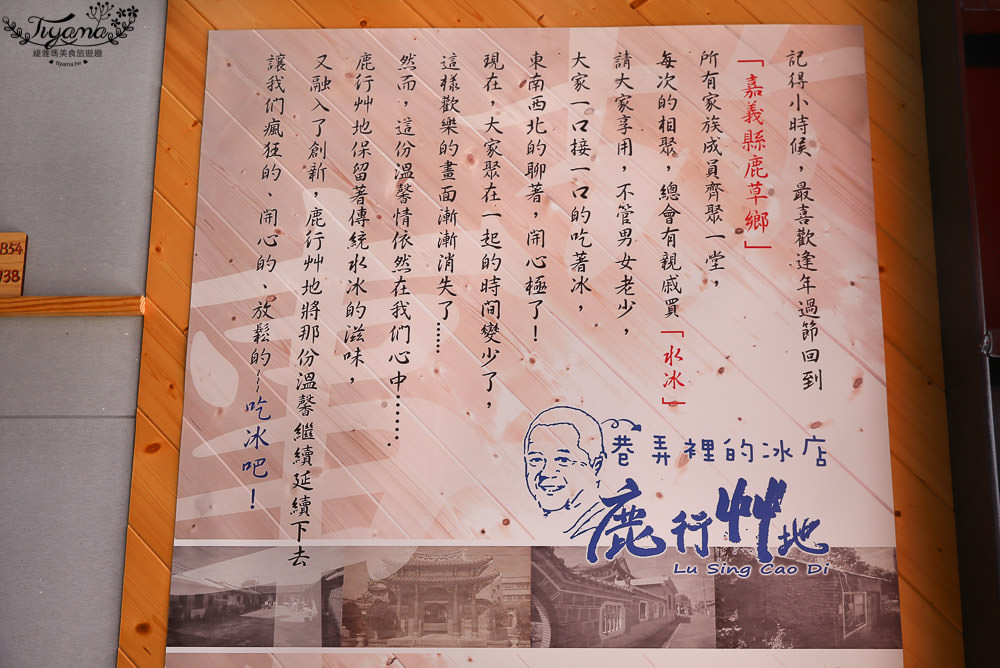 Tiyama
緹雅瑪美食旅遊趣
Tiyama.tw
B54
38
記得小時候，最喜歡逢年過節回到
「嘉義縣鹿草鄉」
所有家族成員齊聚一堂，
每次的相聚，總會有親戚買「水冰」
請大家享用，不管男女老少，
大家一口接一口的吃著冰，
東南西北的聊著，開心極了！
現在，大家聚在一起的時間變少了，
這樣歡樂的畫面漸漸消失了……
然而，這份溫馨情依然在我們心中……．
鹿行艸地保留著傳統水冰的滋味，
又融入了創新，鹿行艸地將那份溫馨繼續延續下去
讓我們瘋狂的、開心的、放鬆的~吃冰吧！
巷弄裡的冰店
鹿行艸地
Lu Sing Cao Di